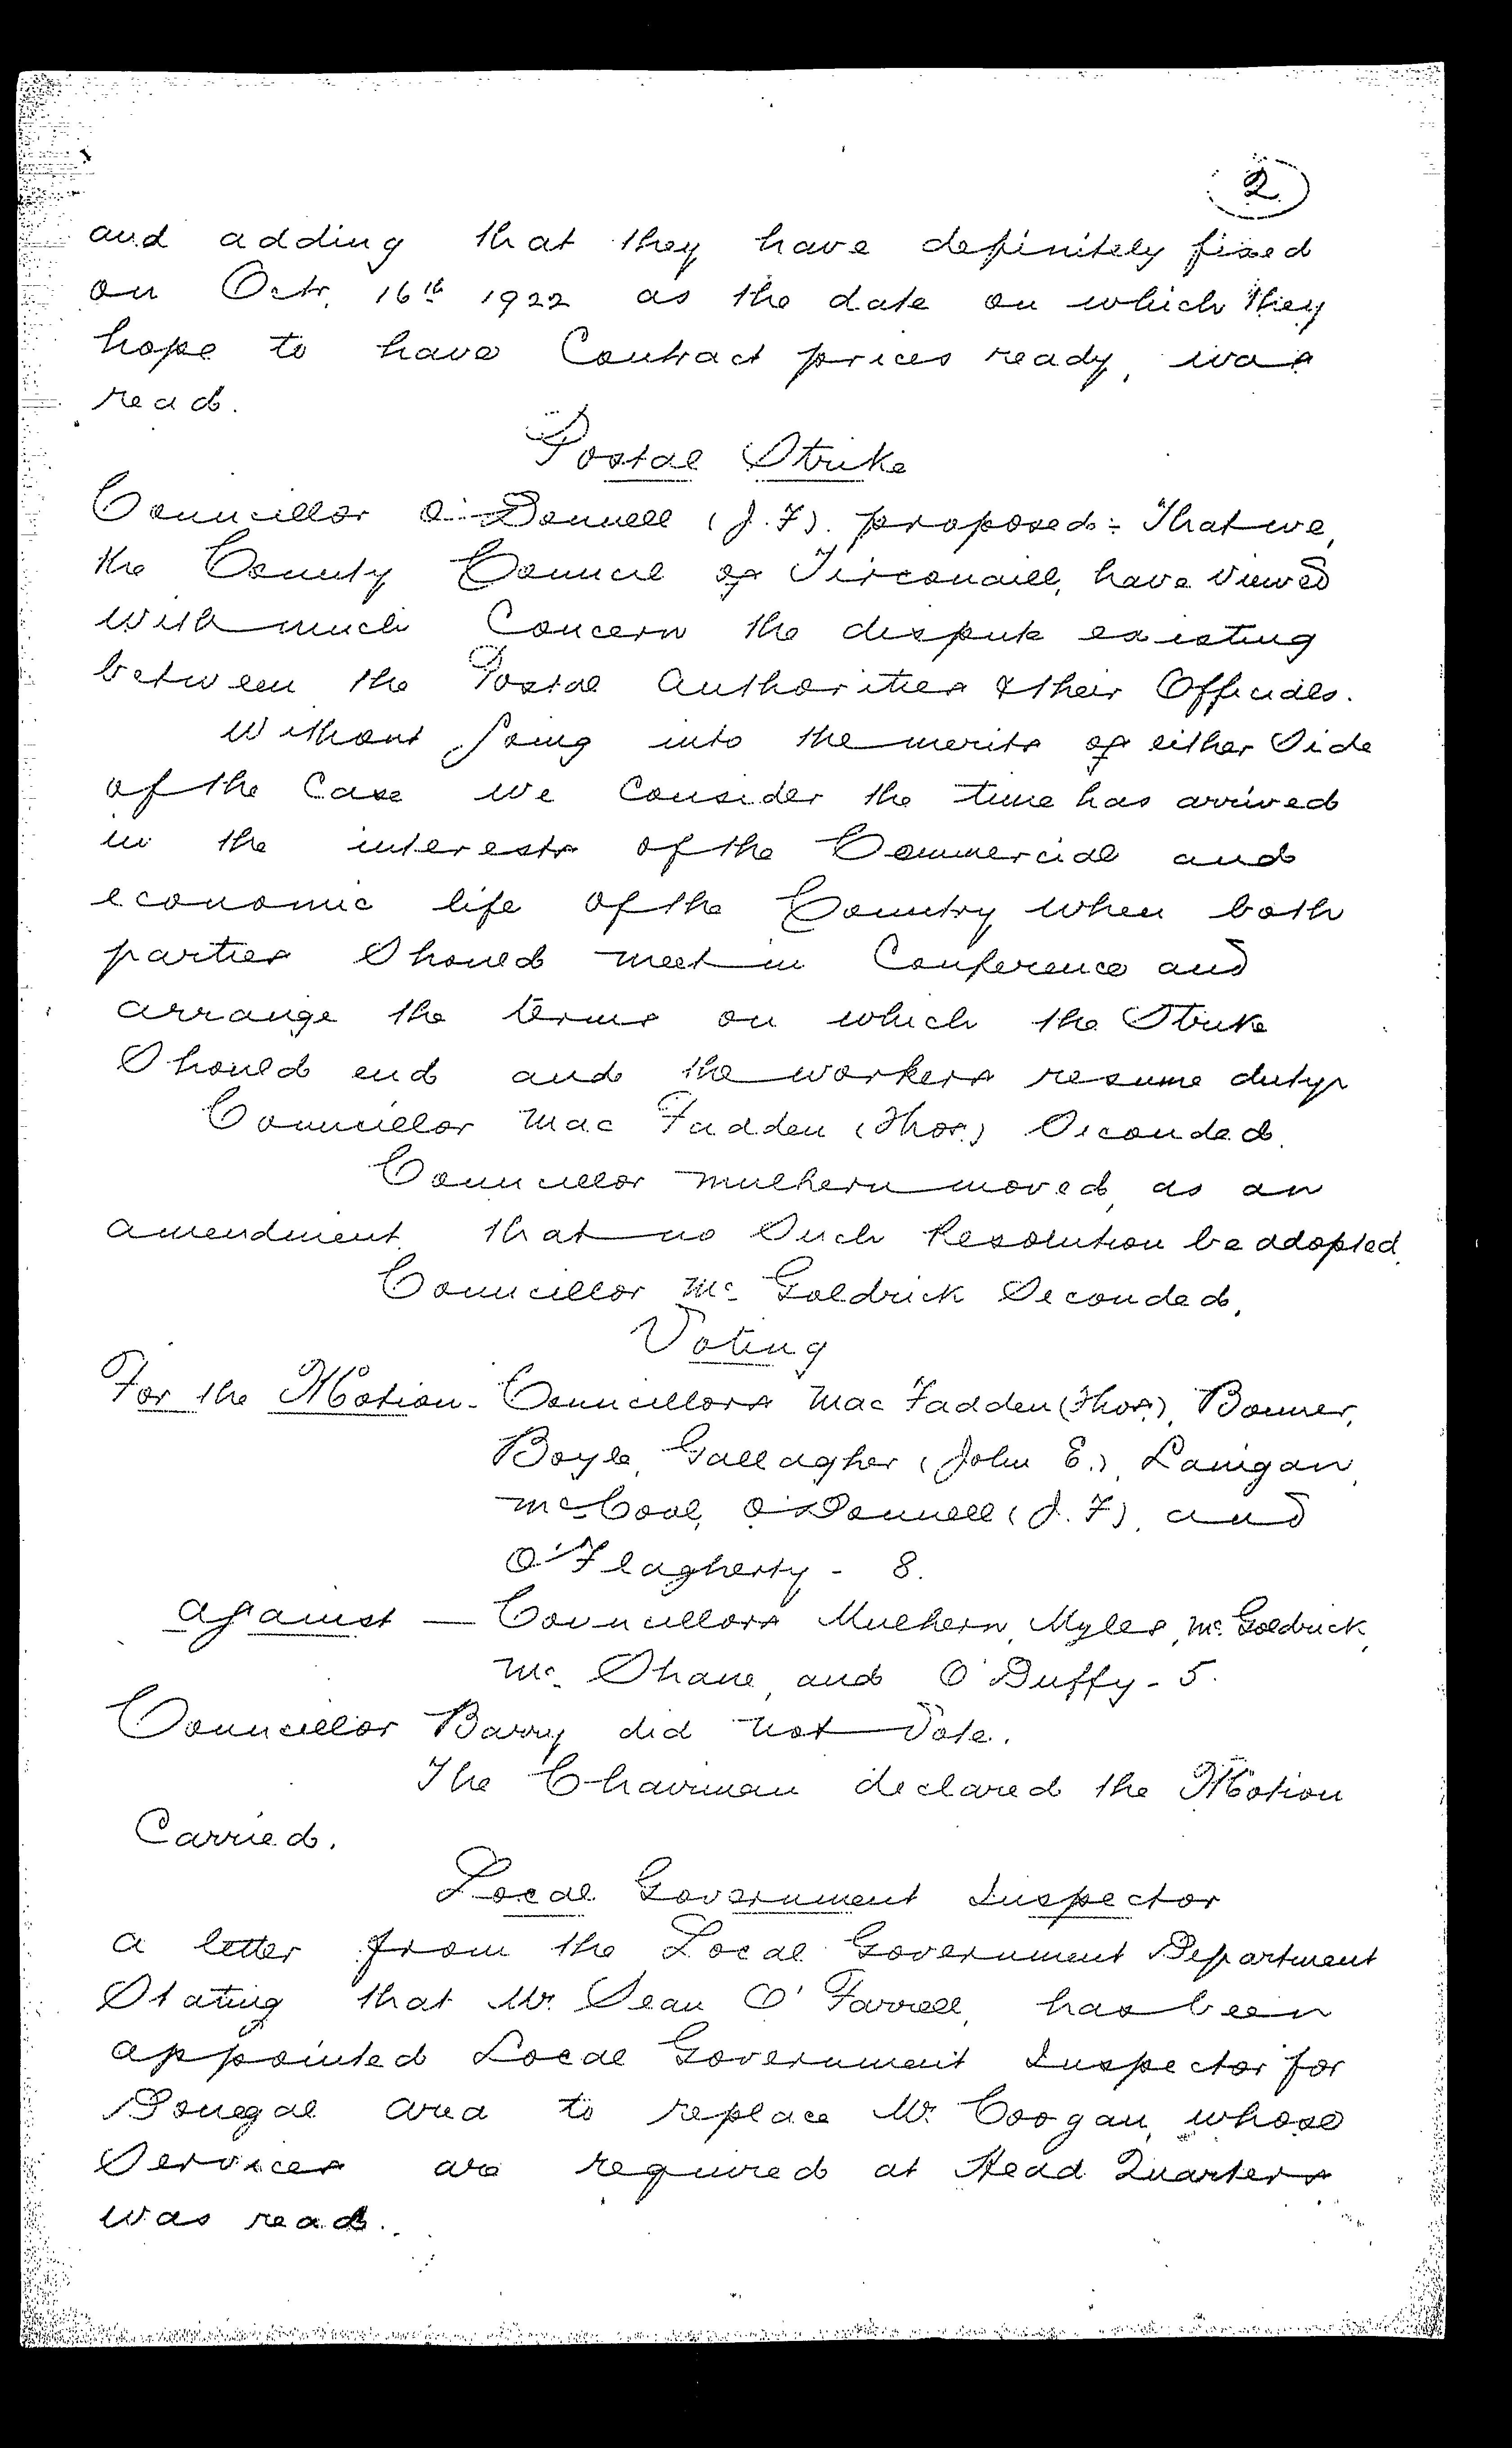 2
and adding that they have definitely fixed
on Octr. 16th 1922 as the date on which they
hope to have Contract prices ready, was
read.
Postal Strike
Councillor O'Donnell (J.F). proposed:- That we,
the County Council of Tirconaill, have viewed
with much Concern the dispute existing
between the Postal Authorities & their Officials.
Without going into the merits of either Side
of the Case we Consider the time has arrived
in the interests of the Commercial and
economic life of the Country when both
parties Should meet in Conference and
arrange the terms on which the Strike
Should end and the workers resume duty.
Councillor Mac Fadden (Thos.) Seconded.
Councillor Mulhern moved, as an
amendment, that no Such Resolution be adopted.
Councillor Mc Goldrick Seconded.
Voting
For the Motion - Councillors Mac Fadden (Thos.), Bonner,
Boyle, Gallagher (John E.), Lanigan,
McCool, O'Donnell (J.F), and
O'Flagherty - 8.
Against — Councillors Mulhern, Myles, Mc Goldrick,
Mc. Shane, and O'Duffy - 5.
Councillor Barry did not Vote.
The Chairman declared the Motion
Carried.
Local Government Inspector
A letter from the Local Government Department
Stating that Mr. Sean O'Farrell, has been
appointed Local Government Inspector for
Donegal area to replace Mr. Coogan, whose
Services are required at Head Quarters
was read.